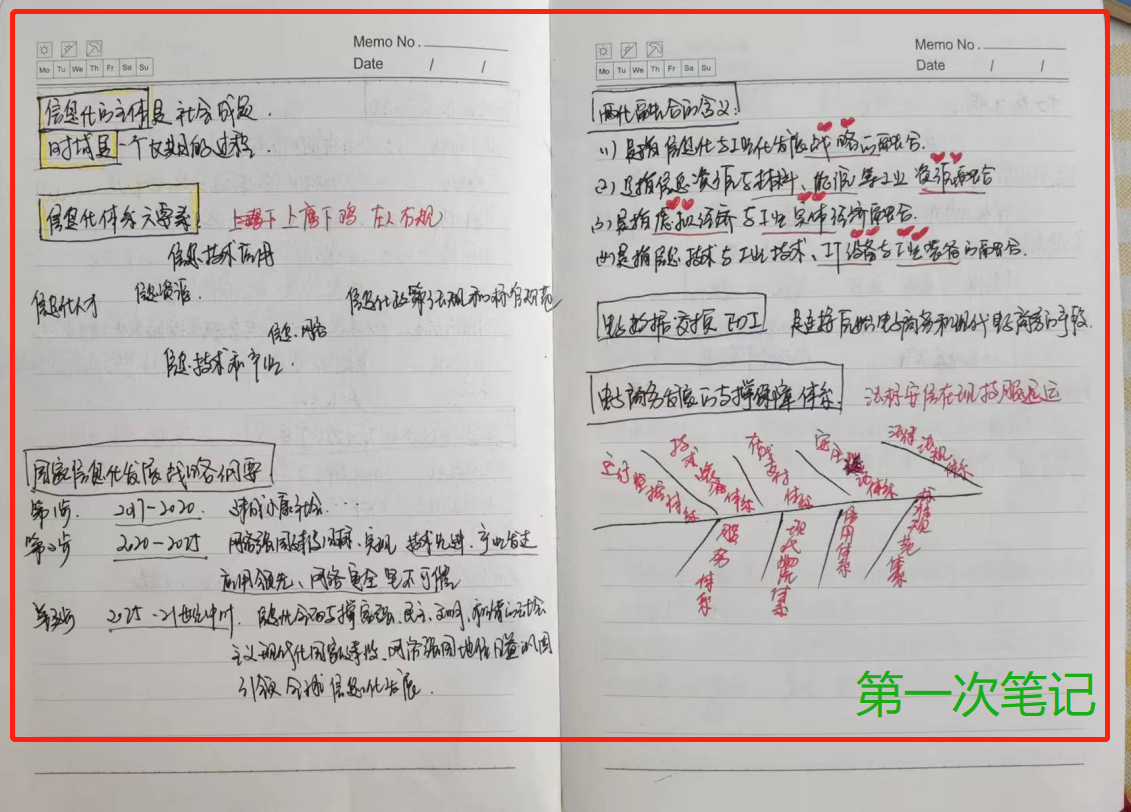 Memo No.
Date / /
Mo Tu We Th Fr Sa Su
信息化的主体是社会成员.
时域是一个长期的过程.
信息化体系六要素 上鹰下鸡.左人右规
信息技术应用
信息化人才 信息资源. 信息化政策法规和标准规范
信息网络
信息技术和产业.
国家信息化发展战略纲要
第1步. 2017-2020. 建成小康社会...
第2步 2020-2025 网络强国建设 实现 技术先进.产业发达
应用领先、网络安全坚不可摧
第3步 2025-21世纪中叶. 信息化全面支撑富强、民主、文明、和谐的社会
主义现代化国家建设.网络强国地位日益巩固
引领全球信息化发展.
Memo No.
Date / /
Mo Tu We Th Fr Sa Su
两化融合的含义:
(1)是指信息化与工业化发展战略的融合.
(2)是指信息资源与材料、能源等工业资源融合
(3)是指虚拟经济与工业实体经济融合.
(4)是指信息技术与工业技术、IT设备与工业装备的融合.
电子数据交换 EDI 是连接原始电子商务和现代电子商务的纽带.
电子商务发展的支撑保障体系. 法标安信在现技服运
运行监控体系
技术装备体系
在线支付体系
安全认证体系
法律法规体系
服务体系
现代物流体系
信用体系
标准规范体系
第一次笔记